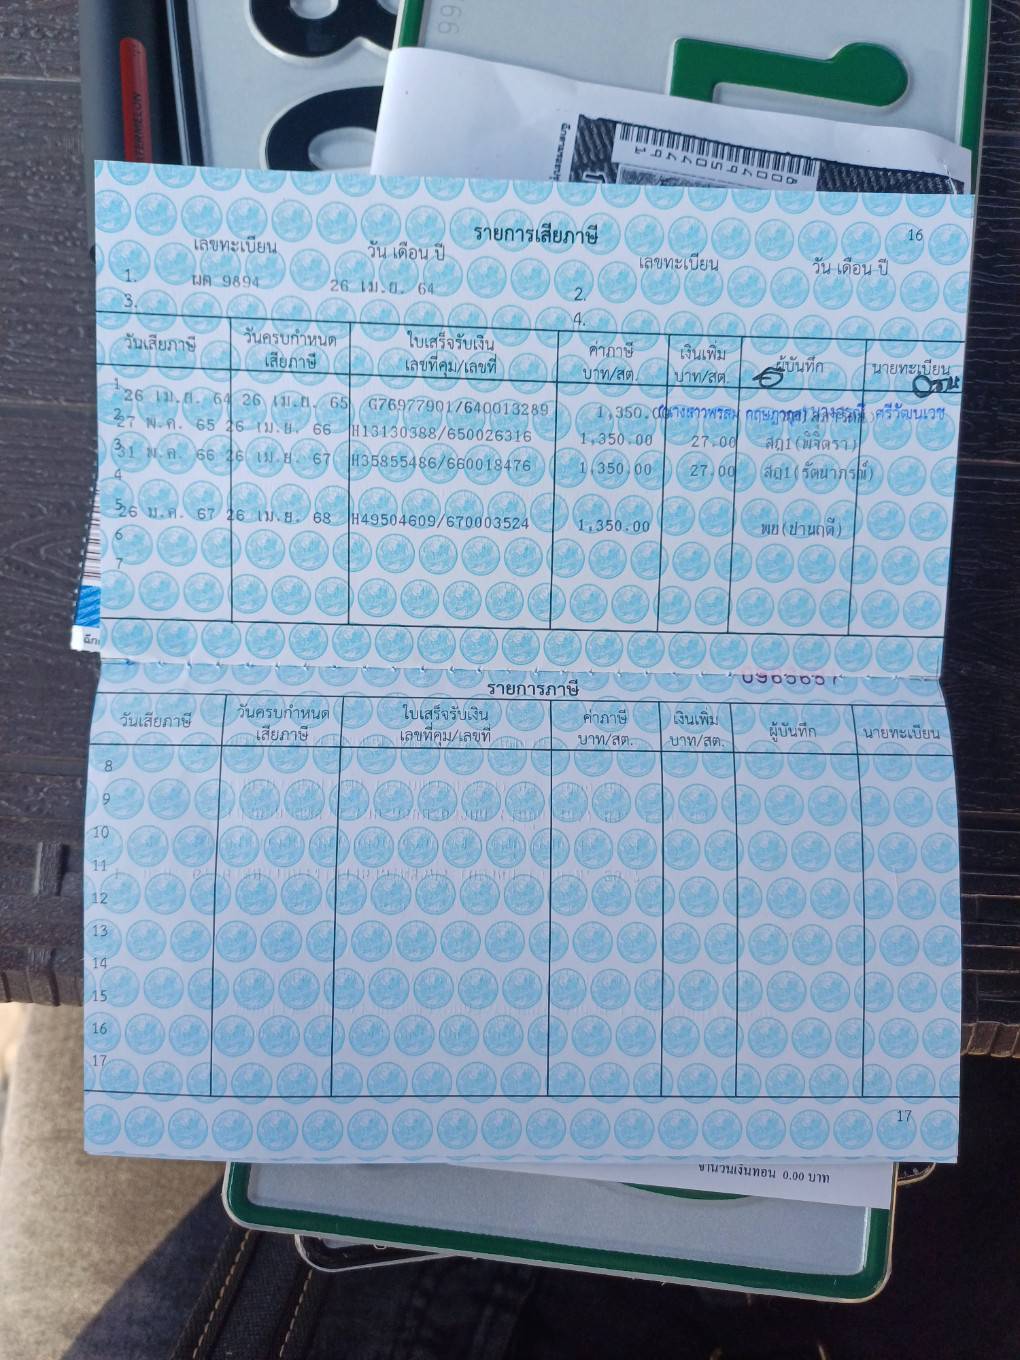 รายการเสียภาษี
16
เลขทะเบียน วัน เดือน ปี เลขทะเบียน วัน เดือน ปี
1. ผค 9894 26 เม.ย. 64 2.
3. 4.
วันเสียภาษี วันครบกำหนดเสียภาษี ใบเสร็จรับเงิน เลขที่คุม/เลขที่ ค่าภาษี บาท/สต. เงินเพิ่ม บาท/สต. ผู้บันทึก นายทะเบียน
1 26 เม.ย. 64 26 เม.ย. 65 G76977901/640013289 1,350.00
2 27 พ.ค. 65 26 เม.ย. 66 H13130388/650026316 1,350.00 27.00 สฎ1(พิจิตรา)
3 31 พ.ค. 66 26 เม.ย. 67 H35855486/660018476 1,350.00 27.00 สฎ1(รัตนาภรณ์)
4
5 26 ม.ค. 67 26 เม.ย. 68 H49504609/670003524 1,350.00 พย(ปานฤดี)
6
7
รายการภาษี
วันเสียภาษี วันครบกำหนดเสียภาษี ใบเสร็จรับเงิน เลขที่คุม/เลขที่ ค่าภาษี บาท/สต. เงินเพิ่ม บาท/สต. ผู้บันทึก นายทะเบียน
8
9
10
11
12
13
14
15
16
17
17
จำนวนเงินทอน 0.00 บาท